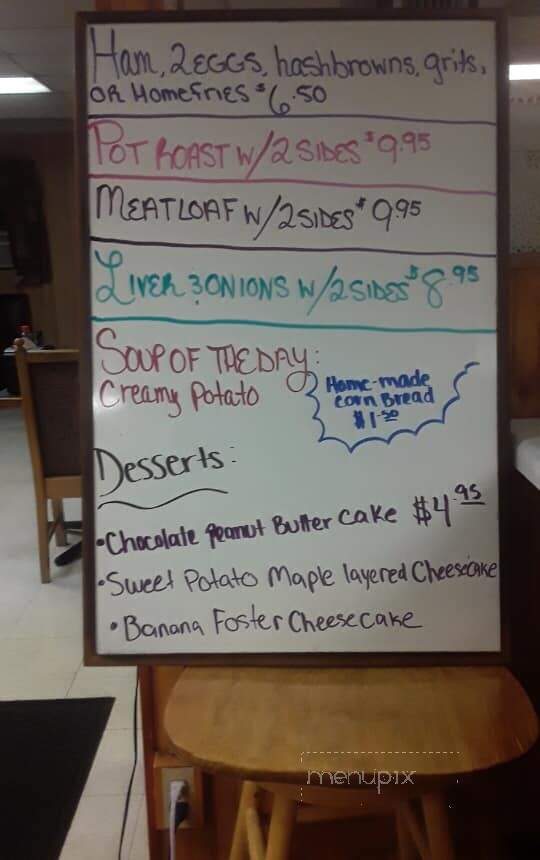 Ham, 2 EGGS, hashbrowns, grits,
OR HomeFries $6.50
POT ROAST W/ 2 SIDES $9.95
MEATLOAF W/ 2 SIDES $9.95
LIVER & ONIONS W/ 2 SIDES $8.95
SOUP OF THE DAY:
Creamy Potato
Home-made
corn Bread
$1.50
Desserts:
• Chocolate Peanut Butter Cake $4.95
• Sweet Potato Maple layered Cheesecake
• Banana Foster Cheesecake
menupix